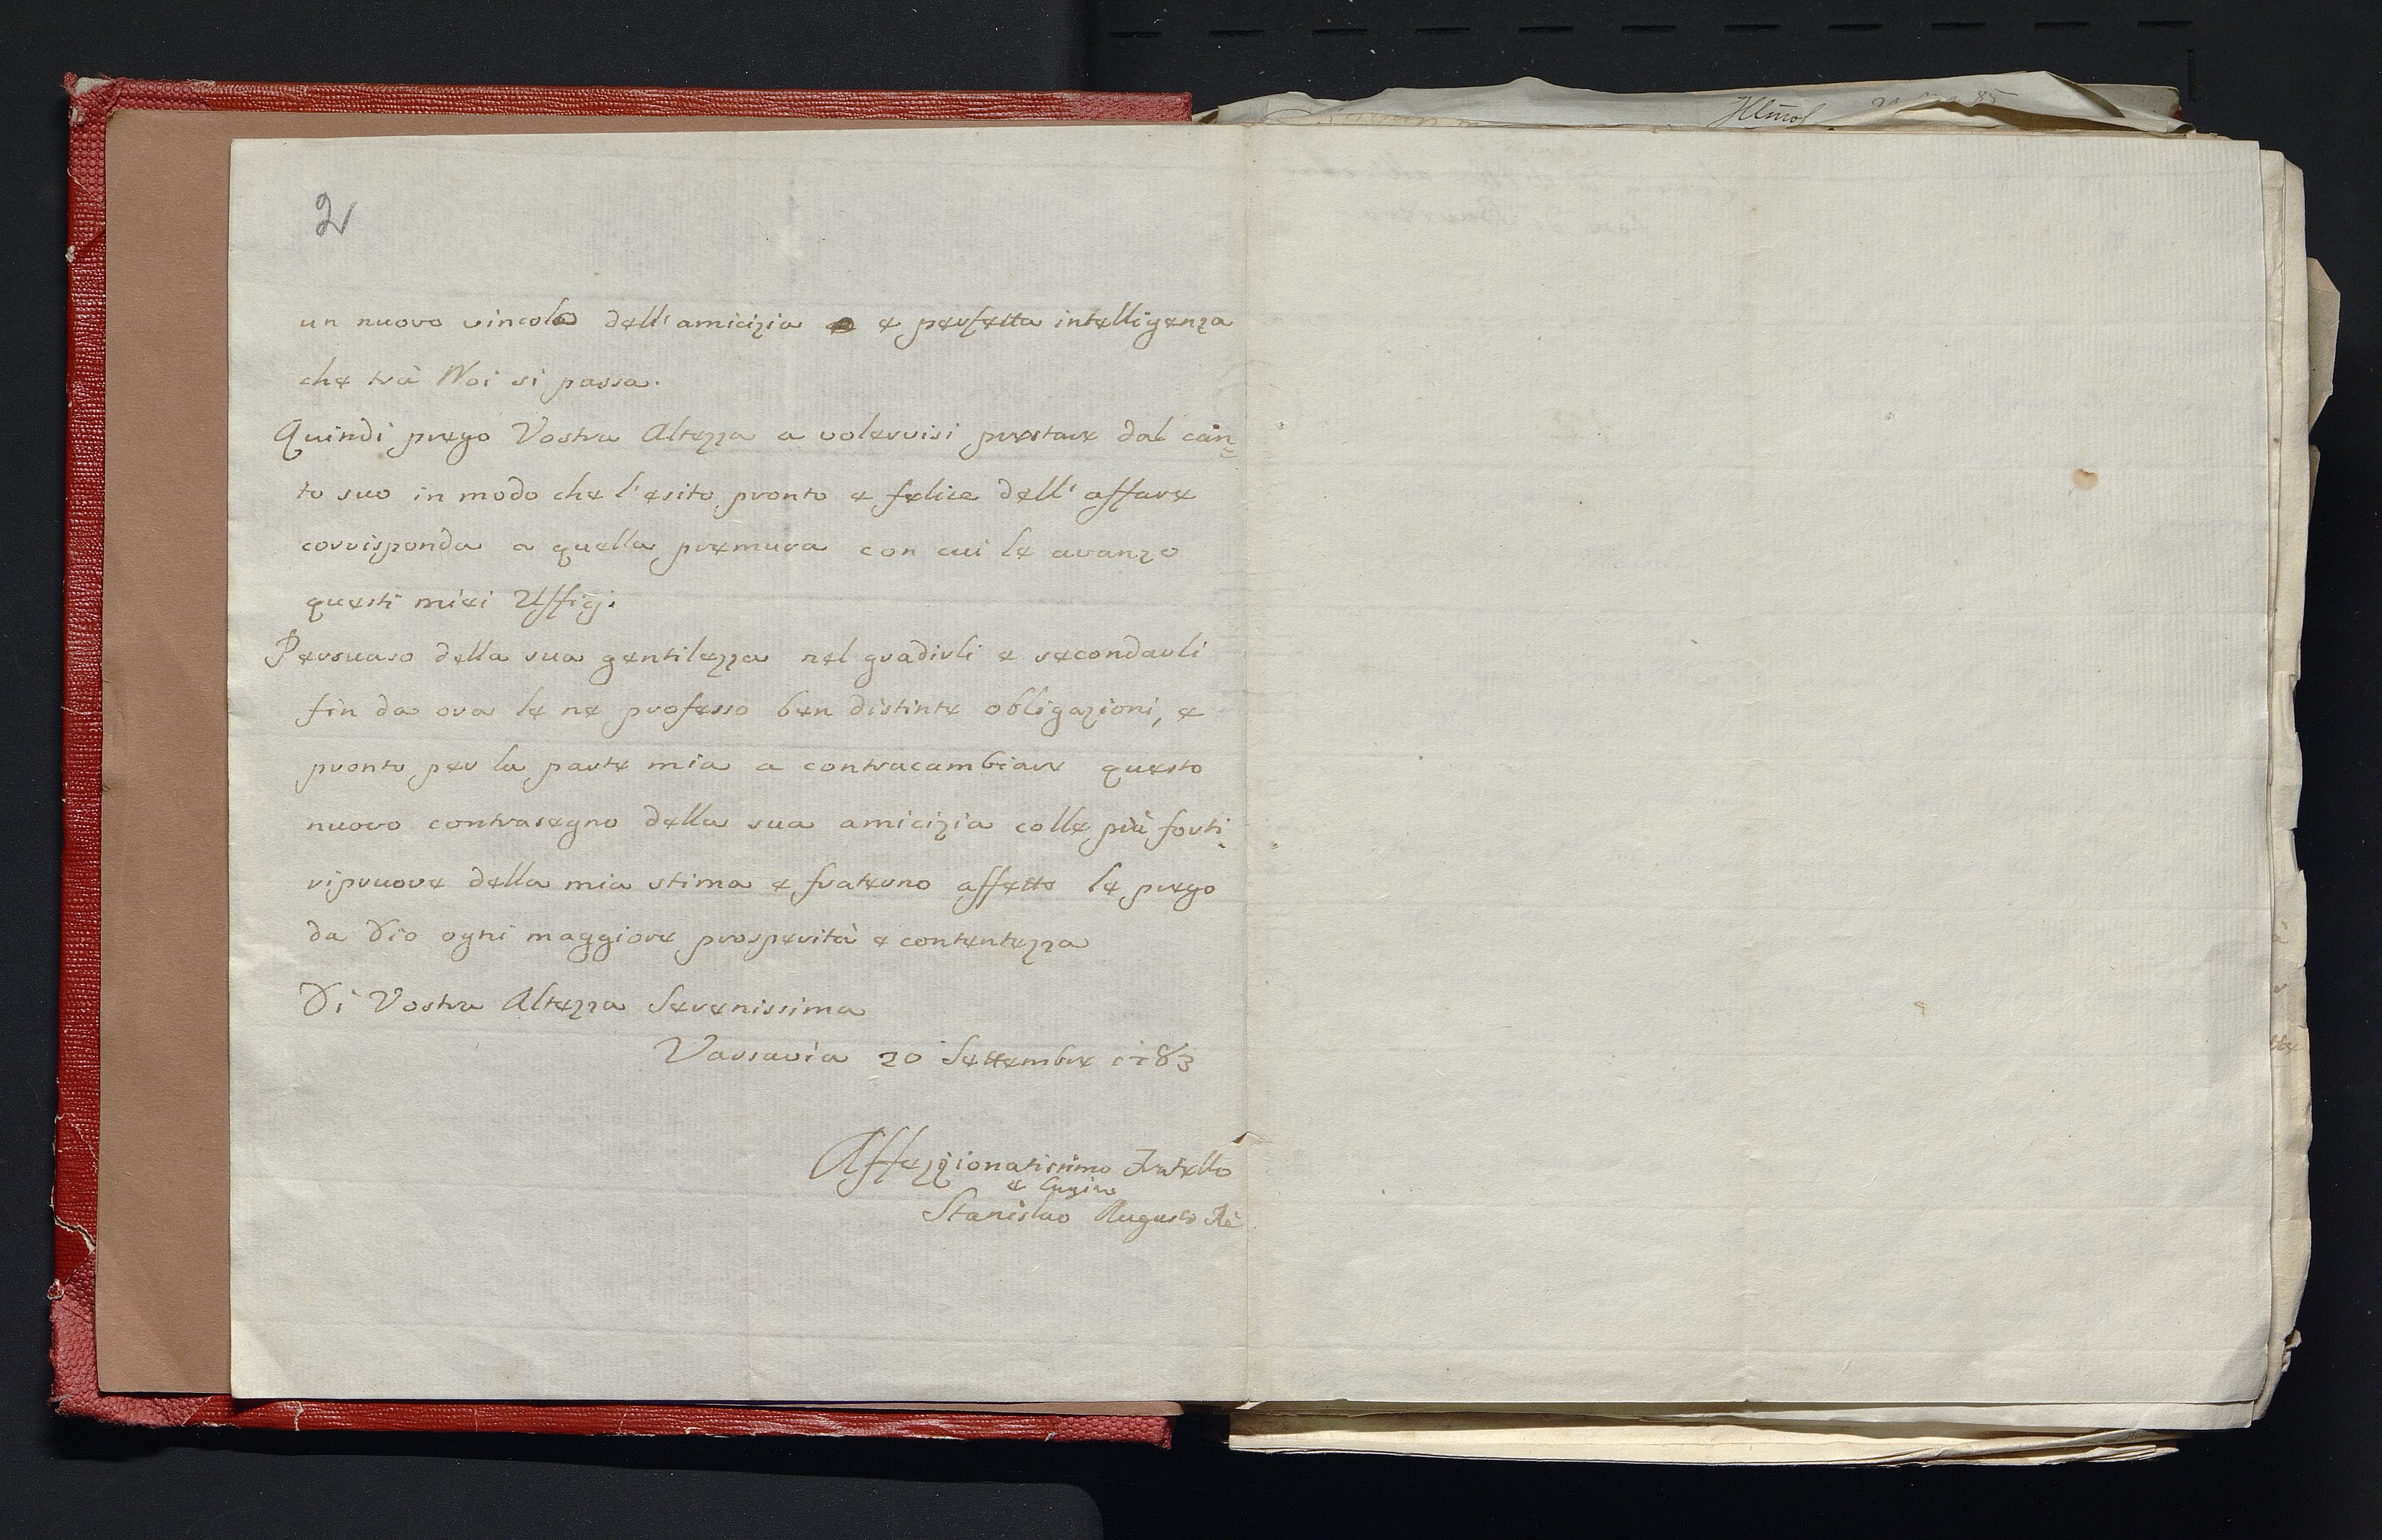 2
un nuovo vincolo dell'amicizia e perfetta intelligenza
che trà Noi si passa.
Quindi prego Vostra Altezza a volervisi prestare dal can=
to suo in modo che l'esito pronto e felice dell'affare
corrisponda a quella premura con cui le avanzo
questi miei Uffizj.
Persuaso della sua gentilezza nel gradirli e secondarli
fin da ora le ne professo ben distinte obligazioni, e
pronto per la parte mia a contracambiare questo
nuovo contrasegno della sua amicizia colle più forti
ripruove della mia stima e fraterno affetto le prego
da Dio ogni maggiore prosperità e contentezza
Di Vostra Altezza Serenissima
Varsavia 20 Settembre 1783
Affezzionatissimo Fratello
e Cugino
Stanislao Augusto Rè